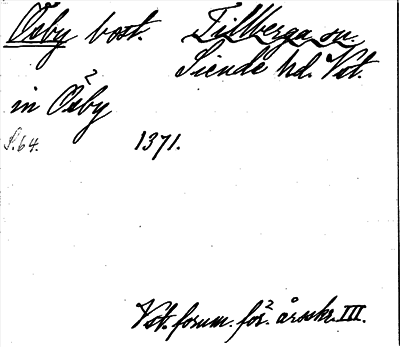 Ösby bost. Tillberga sn.
Siende hd. Vst.
in Ösby
S. 64. 1371.
Vst. fornm. för:s årsskr. III.